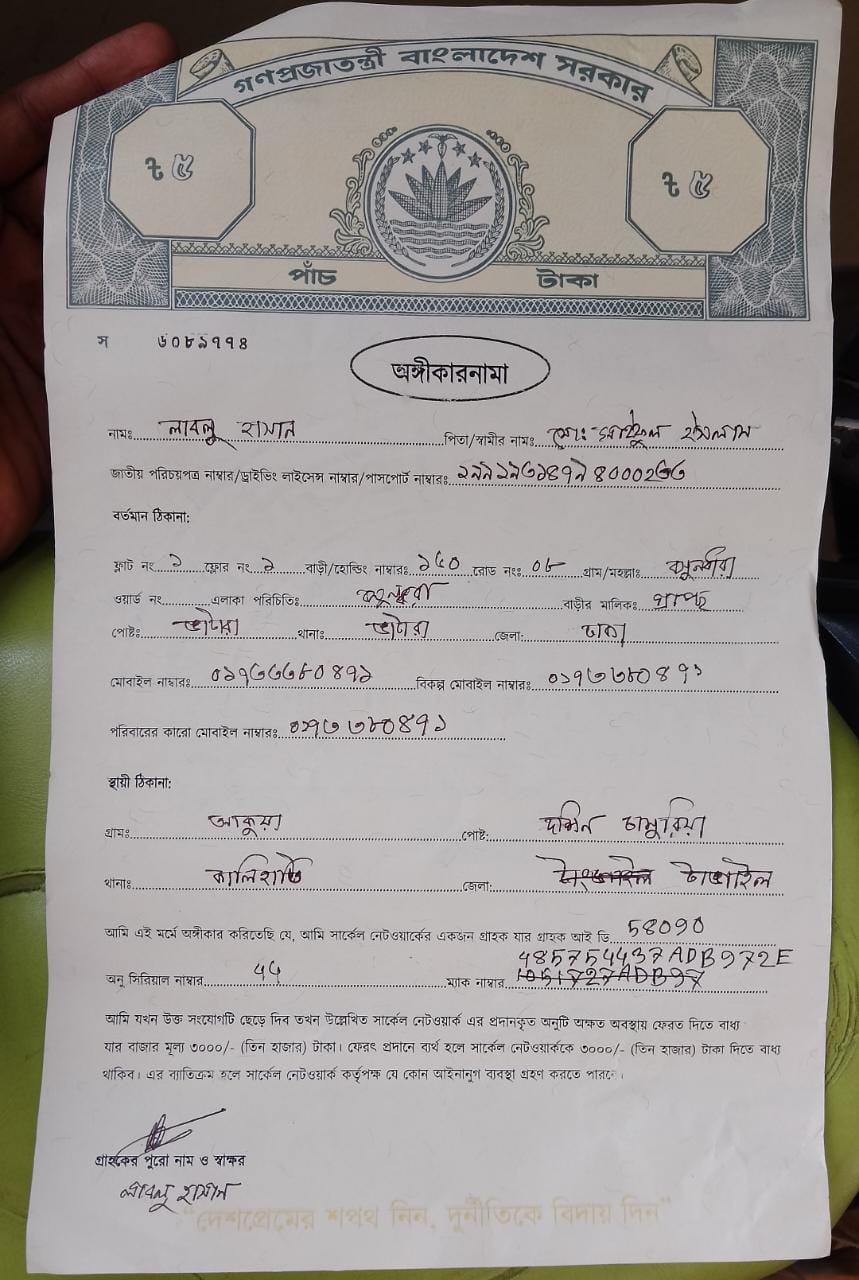 গণপ্রজাতন্ত্রী বাংলাদেশ সরকার
৳ ৫ ৳ ৫
পাঁচ টাকা
স ৬০৮৯৭৭৪
অঙ্গীকারনামা
নামঃ লাবলু হাসান পিতা/স্বামীর নামঃ মোঃ ইসলাম
জাতীয় পরিচয়পত্র নাম্বার/ড্রাইভিং লাইসেন্স নাম্বার/পাসপোর্ট নাম্বারঃ
বর্তমান ঠিকানা:
ফ্লাট নং ১ ফ্লোর নং ১ বাড়ী/হোল্ডিং নাম্বারঃ ১৫০ রোড নংঃ ০৮ গ্রাম/মহল্লাঃ বসুন্ধরা
ওয়ার্ড নং এলাকা পরিচিতিঃ বসুন্ধরা বাড়ীর মালিকঃ
পোষ্টঃ ভাটারা থানাঃ ভাটারা জেলা: ঢাকা
মোবাইল নাম্বারঃ ০১৭৩৩৮০৪৭১ বিকল্প মোবাইল নাম্বারঃ ০১৭৩৩৮০৪৭১
পরিবারের কারো মোবাইল নাম্বারঃ ০১৭৩৩৮০৪৭১
স্থায়ী ঠিকানা:
গ্রামঃ আকুয়া পোষ্ট: দক্ষিন চামুরিয়া
থানাঃ কালিহাতি জেলা: টাঙ্গাইল
আমি এই মর্মে অঙ্গীকার করিতেছি যে, আমি সার্কেল নেটওয়ার্কের একজন গ্রাহক যার গ্রাহক আই ডি 58090
অনু সিরিয়াল নাম্বার ম্যাক নাম্বার 485754437ADB972E
আমি যখন উক্ত সংযোগটি ছেড়ে দিব তখন উল্লেখিত সার্কেল নেটওয়ার্ক এর প্রদানকৃত অনুটি অক্ষত অবস্থায় ফেরত দিতে বাধ্য
যার বাজার মূল্য ৩০০০/- (তিন হাজার) টাকা। ফেরৎ প্রদানে ব্যর্থ হলে সার্কেল নেটওয়ার্ককে ৩০০০/- (তিন হাজার) টাকা দিতে বাধ্য
থাকিব। এর ব্যতিক্রম হলে সার্কেল নেটওয়ার্ক কর্তৃপক্ষ যে কোন আইনানুগ ব্যবস্থা গ্রহণ করতে পারবে।
গ্রাহকের পুরো নাম ও স্বাক্ষর
লাবলু হাসান
"দেশপ্রেমের শপথ নিন, দুর্নীতিকে বিদায় দিন"